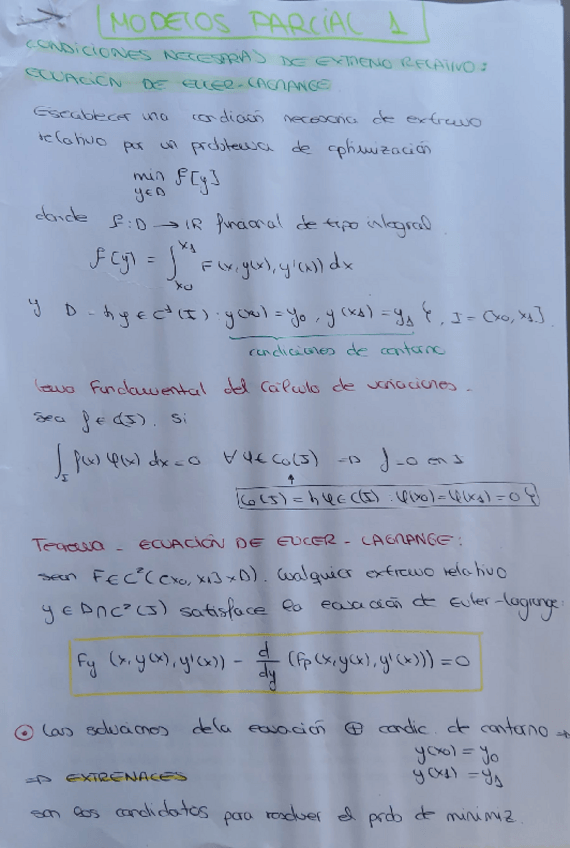 MODELOS PARCIAL 1
CONDICIONES NECESARIAS DE EXTREMO RELATIVO:
ECUACIÓN DE EULER-LAGRANGE
Establecer una condición necesaria de extremo
relativo por un problema de optimización
min f[y]
y∈D
donde f: D → IR funcional de tipo integral.
f(y) = ∫_{x0}^{x1} F(x, y(x), y'(x)) dx
y D = {y ∈ C¹(I) : y(x0) = y0, y(x1) = y1}, I = [x0, x1].
condiciones de contorno
Lema Fundamental del Cálculo de variaciones.
Sea f ∈ C(I). Si
∫_I f(x) φ(x) dx = 0 ∀ φ ∈ C0(I) ⇒ f = 0 en I
C0(I) = {φ ∈ C(I) : φ(x0) = φ(x1) = 0}
Teorema - ECUACIÓN DE EULER - LAGRANGE:
sean F ∈ C²([x0, x1] x D). Cualquier extremo relativo
y ∈ D ∩ C²(I) satisface la ecuación de Euler-Lagrange:
Fy (x, y(x), y'(x)) - d/dy (Fp(x, y(x), y'(x))) = 0
⊙ Las soluciones de la ecuación ⊕ condic. de contorno ⇒
y(x0) = y0
y(x1) = y1
⇒ EXTREMALES
son los candidatos para resolver el prob de minimiz.